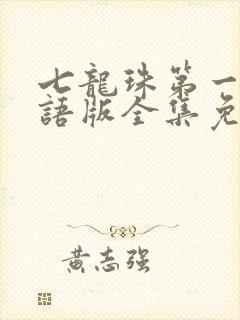 七龍珠第一
語版全集免
黃志强